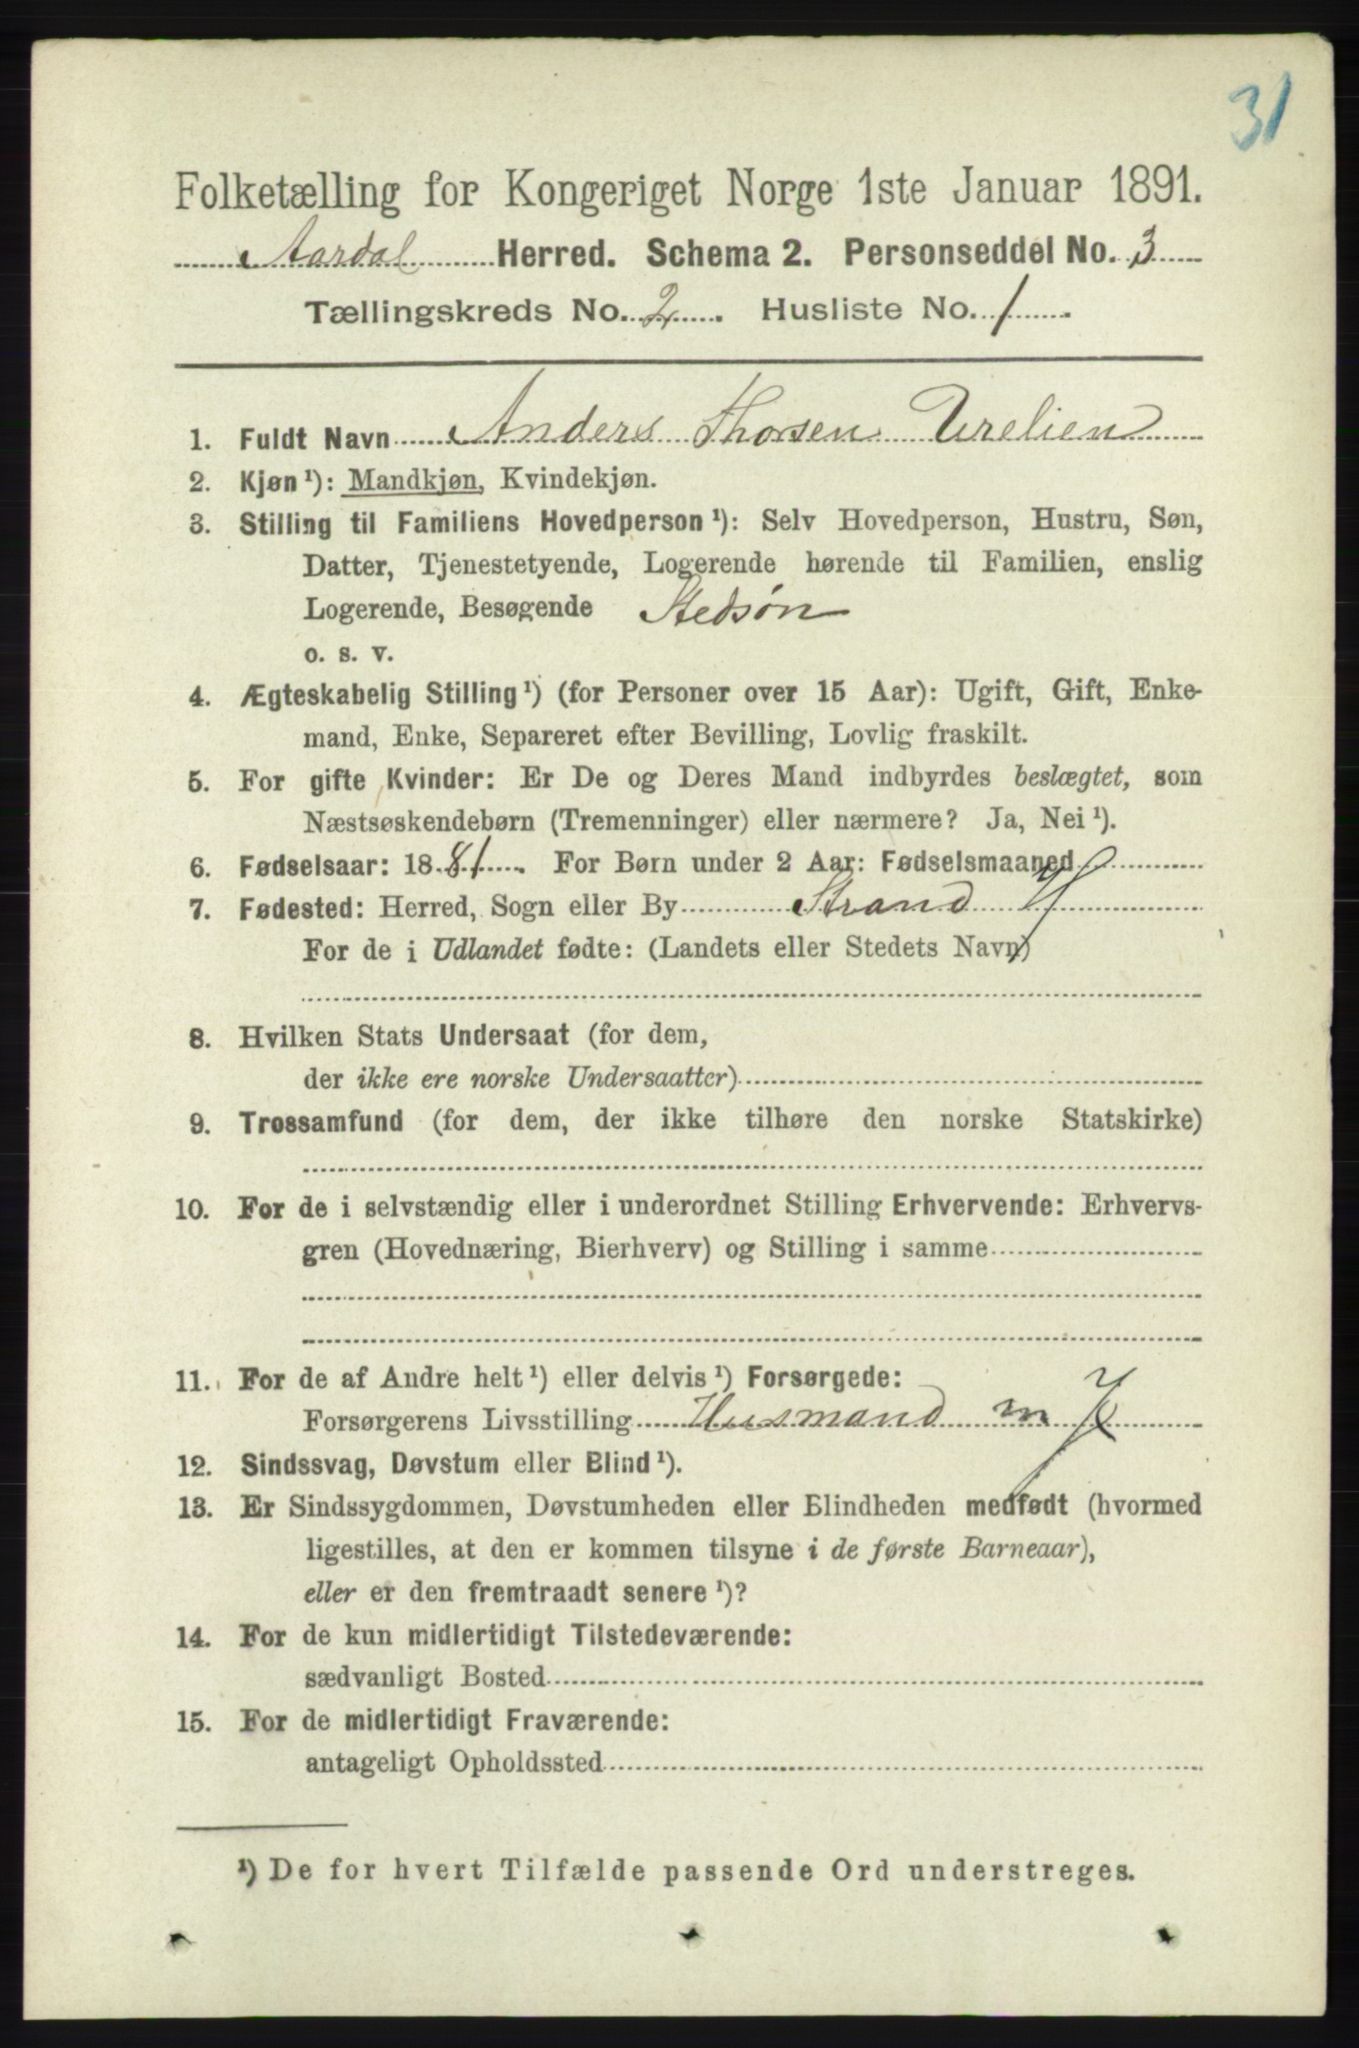 31
Folketælling for Kongeriget Norge 1ste Januar 1891.
Aardal Herred. Schema 2. Personseddel No. 3
Tællingskreds No. 2. Husliste No. 1.
1. Fuldt Navn Anders Thorsen Urelien
2. Kjøn ¹): Mandkjøn, Kvindekjøn.
3. Stilling til Familiens Hovedperson ¹): Selv Hovedperson, Hustru, Søn,
Datter, Tjenestetyende, Logerende hørende til Familien, enslig
Logerende, Besøgende Stedsøn
o. s. v.
4. Ægteskabelig Stilling ¹) (for Personer over 15 Aar): Ugift, Gift, Enke-
mand, Enke, Separeret efter Bevilling, Lovlig fraskilt.
5. For gifte Kvinder: Er De og Deres Mand indbyrdes beslægtet, som
Næstsøskendebørn (Tremenninger) eller nærmere? Ja, Nei ¹).
6. Fødselsaar: 1881. For Børn under 2 Aar: Fødselsmaaned
7. Fødested: Herred, Sogn eller By Strand
For de i Udlandet fødte: (Landets eller Stedets Navn)
8. Hvilken Stats Undersaat (for dem,
der ikke ere norske Undersaatter)
9. Trossamfund (for dem, der ikke tilhøre den norske Statskirke)
10. For de i selvstændig eller i underordnet Stilling Erhvervende: Erhvervs-
gren (Hovednæring, Bierhverv) og Stilling i samme
11. For de af Andre helt ¹) eller delvis ¹) Forsørgede:
Forsørgerens Livsstilling Husmand m J
12. Sindssvag, Døvstum eller Blind ¹).
13. Er Sindssygdommen, Døvstumheden eller Blindheden medfødt (hvormed
ligestilles, at den er kommen tilsyne i de første Barneaar),
eller er den fremtraadt senere ¹)?
14. For de kun midlertidigt Tilstedeværende:
sædvanligt Bosted
15. For de midlertidigt Fraværende:
antageligt Opholdssted
¹) De for hvert Tilfælde passende Ord understreges.